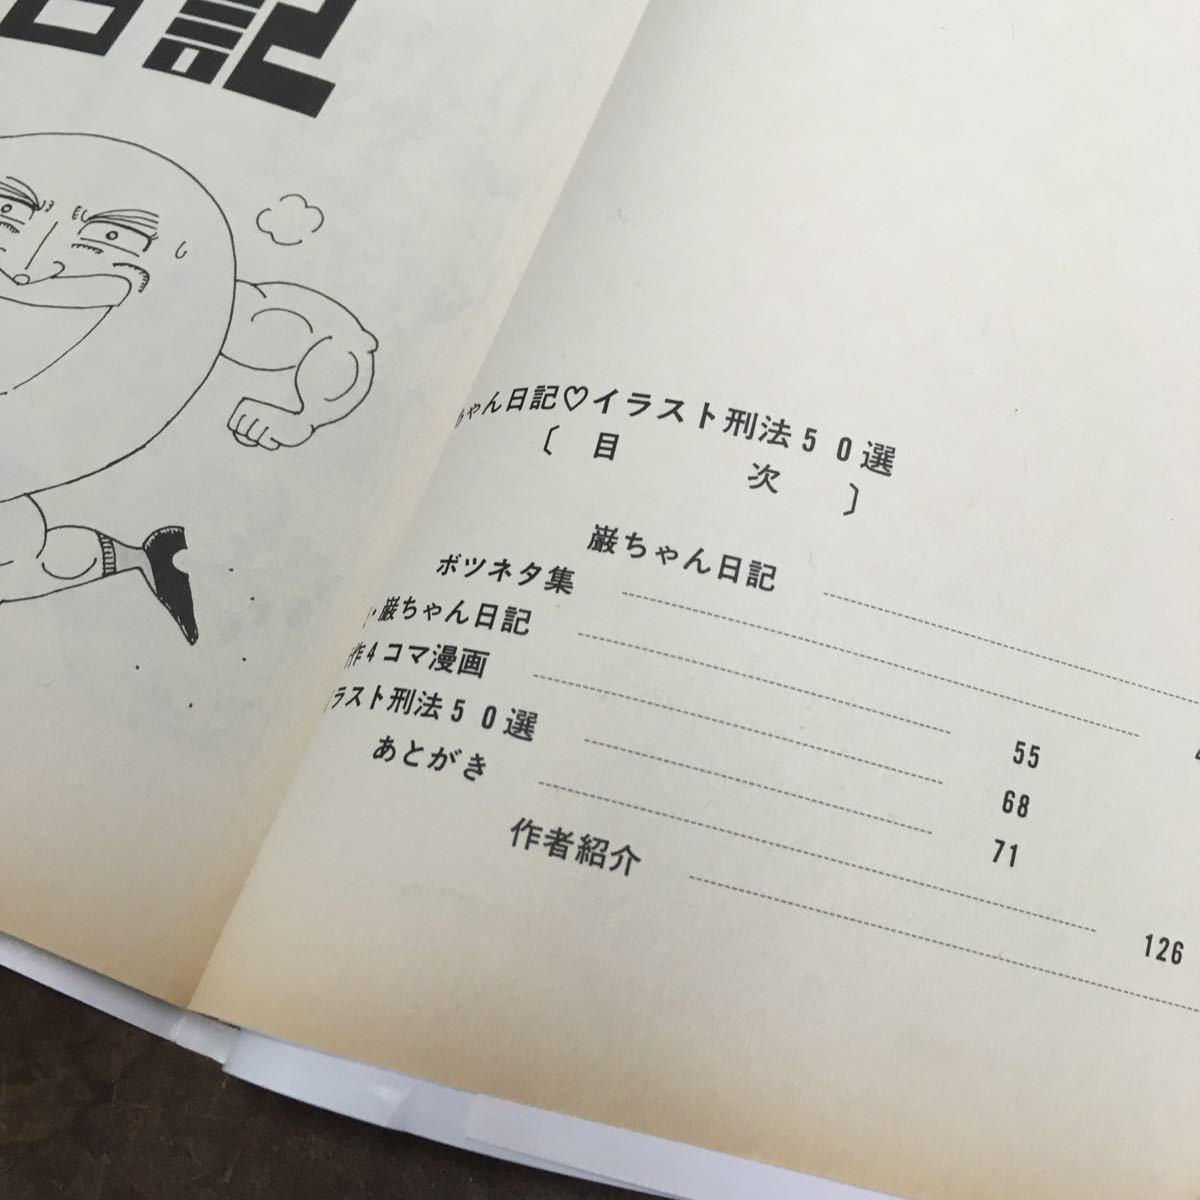 日記
ちゃん日記♡イラスト刑法50選
〔 目 次 〕
巌ちゃん日記
ボツネタ集
・巌ちゃん日記 55
作4コマ漫画 68
ラスト刑法50選 71
あとがき 126
作者紹介